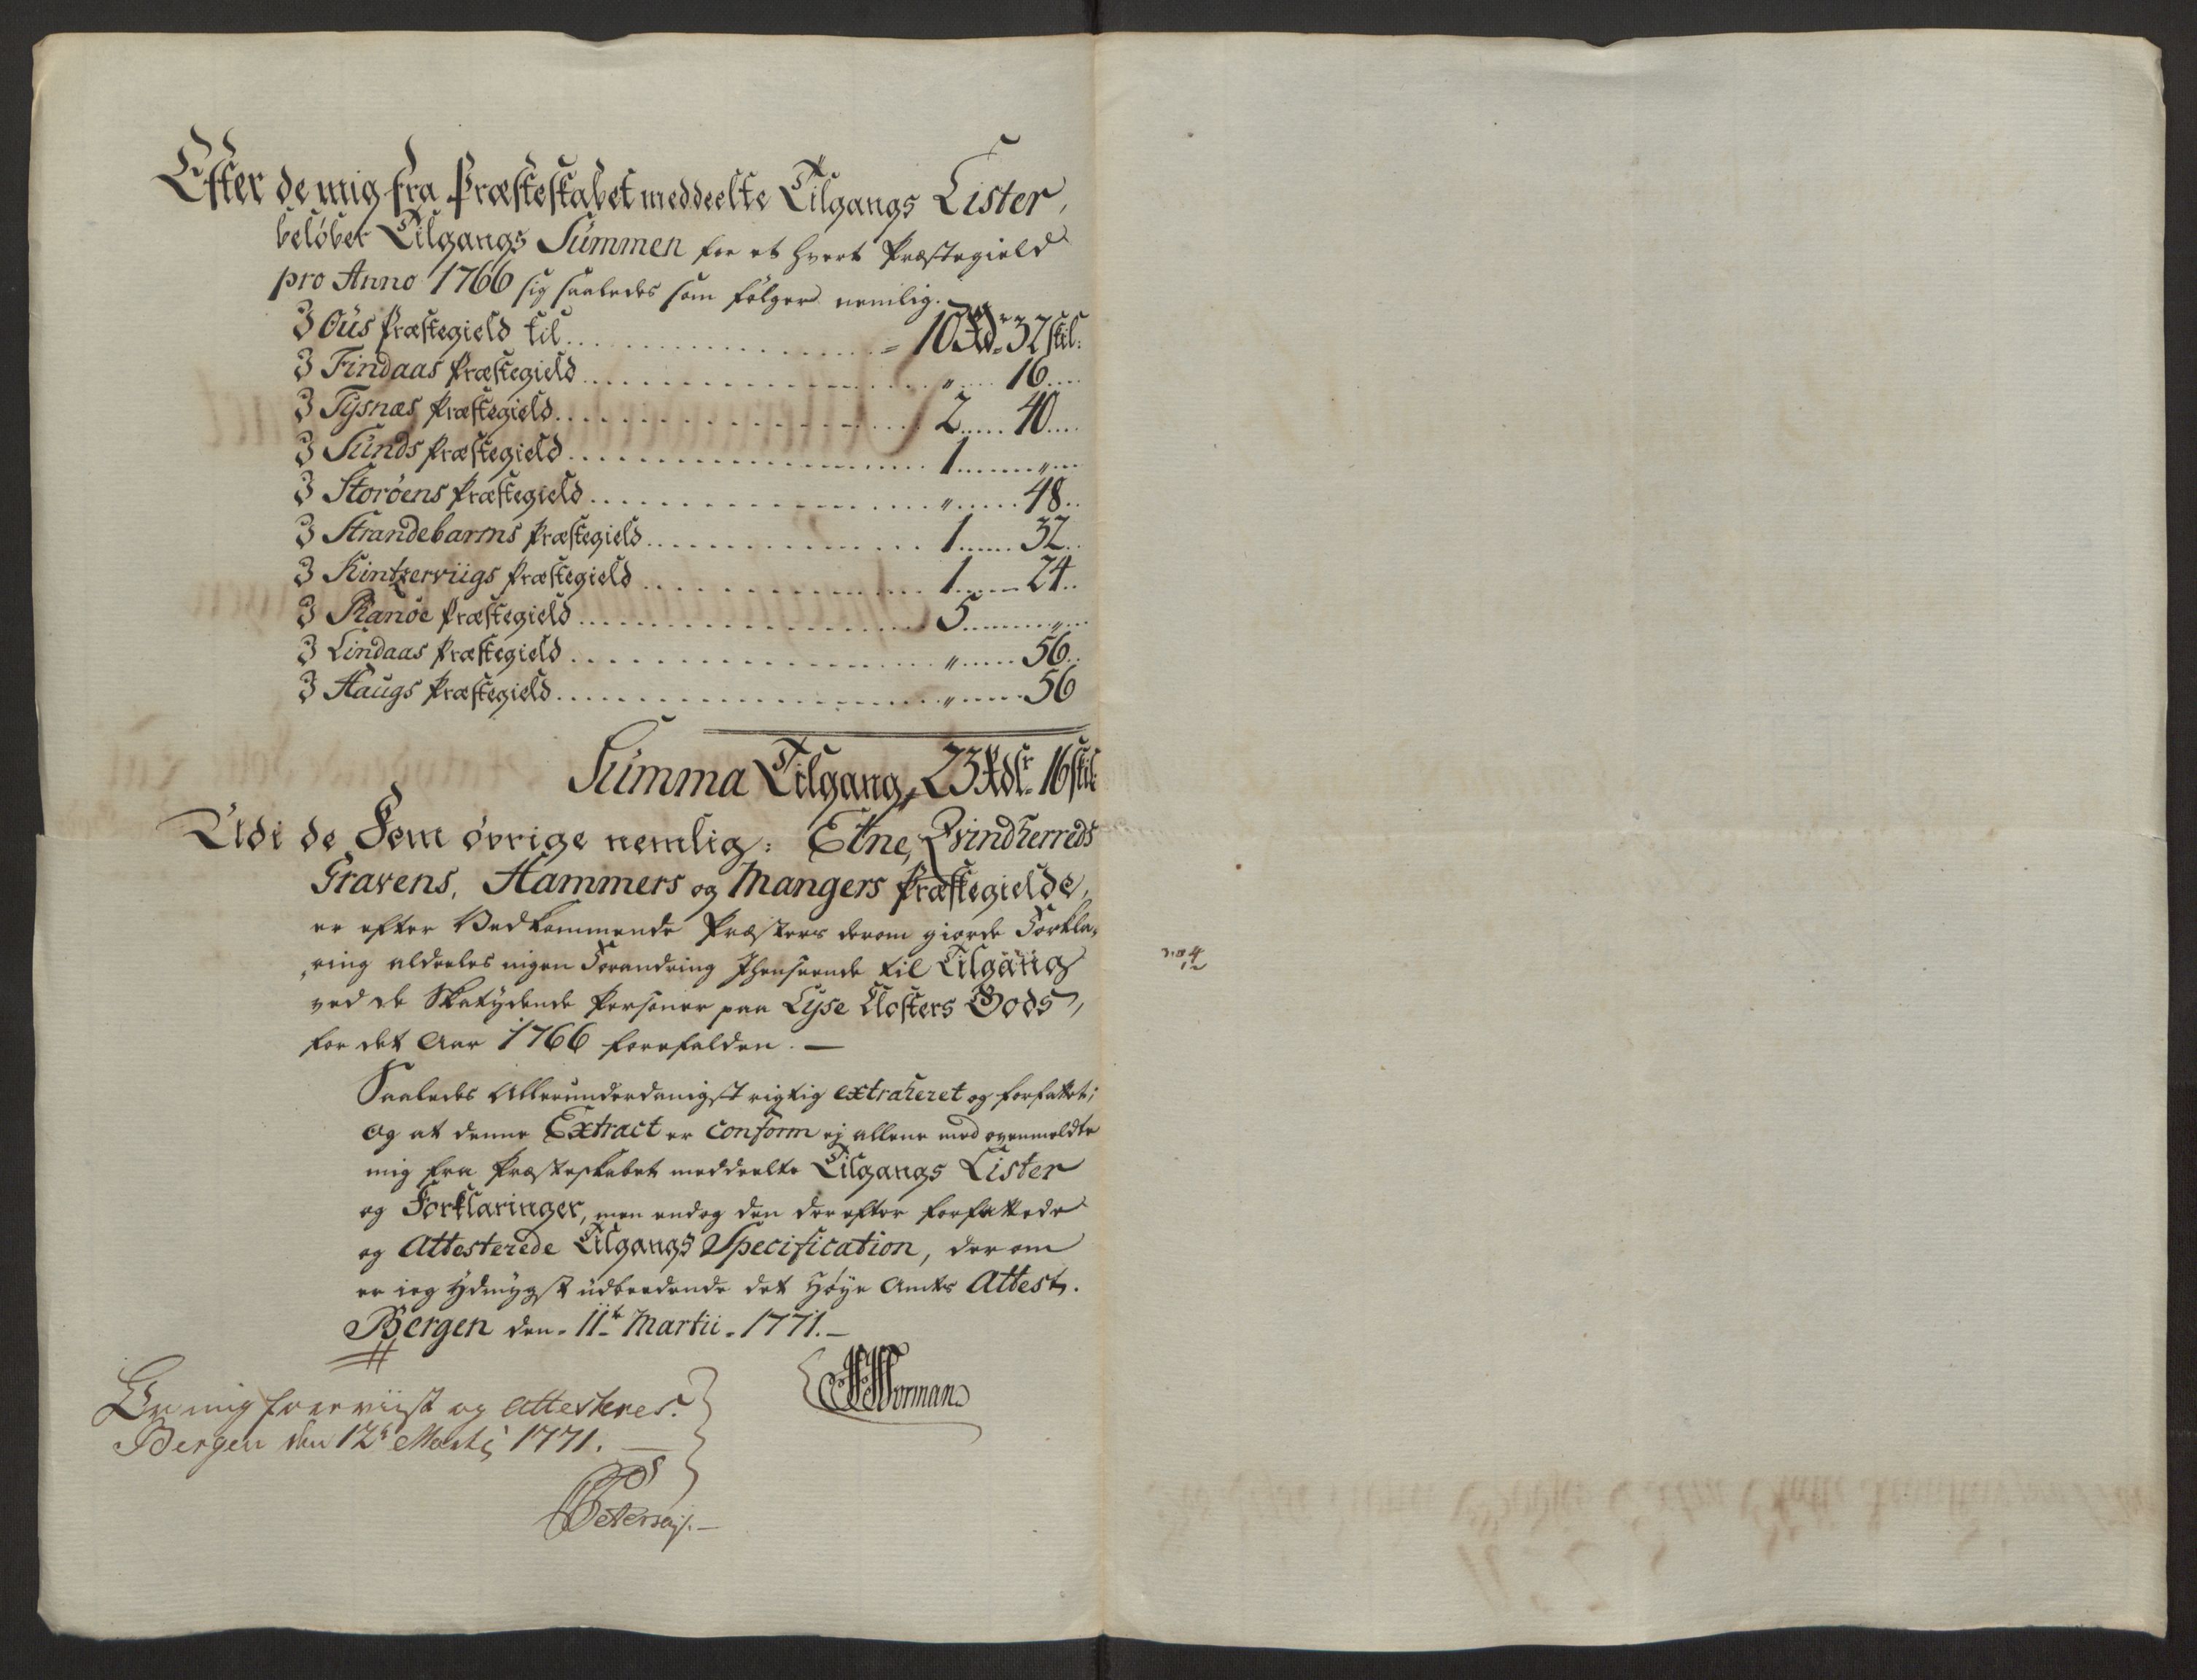 Efter de mig fra Præsteskabet meddeelte Tilgangs Lister,
beløber Tilgangs Summen for et hvert Præstegield
pro Anno 1766 sig saaledes som følger nemlig.
I Øus Præstegield til = 10 Rdr 32 skil:
I Findaas Præstegield " 16
I Tysnæs Præstegield 2 40
I Sunds Præstegield 1 "
I Storøens Præstegield " 48
I Strandebarms Præstegield 1 32
I Kintzerviigs Præstegield 1 24
I Kanøe Præstegield 5 "
I Lindaas Præstegield " 56
I Haugs Præstegield " 56
Summa Tilgang, 23 Rdlr 16 skil
Udi de Fem øvrige nemlig: Etne, Qvindherreds
Gravens, Hammers og Mangers Præstegielde,
er efter Vedkommende Præsters derom giorde Forkla,
,ring aldeeles ingen Forandring Ihenseende til Tilgang
ved de Skatydende Personer paa Lyse Closters Gods,
for det Aar 1766 forefalden. —
Saaledes Allerunderdanigst rigtig extraheret og forfattet;
og at denne Extract er Conform ej allene med ovenmeldte
mig fra Præsteskabet meddeelte Tilgangs Lister
og Forklaringer, men endog den derefter forfattede
og Attesterede Tilgangs Specification, der om
er ieg ydmygst udbeedende det Høye Amts Attest.
Bergen den 11te Martii 1771. —
Worman
Er mig foreviist og attesteres.
Bergen den 12t Martj 1771. —
Petersen